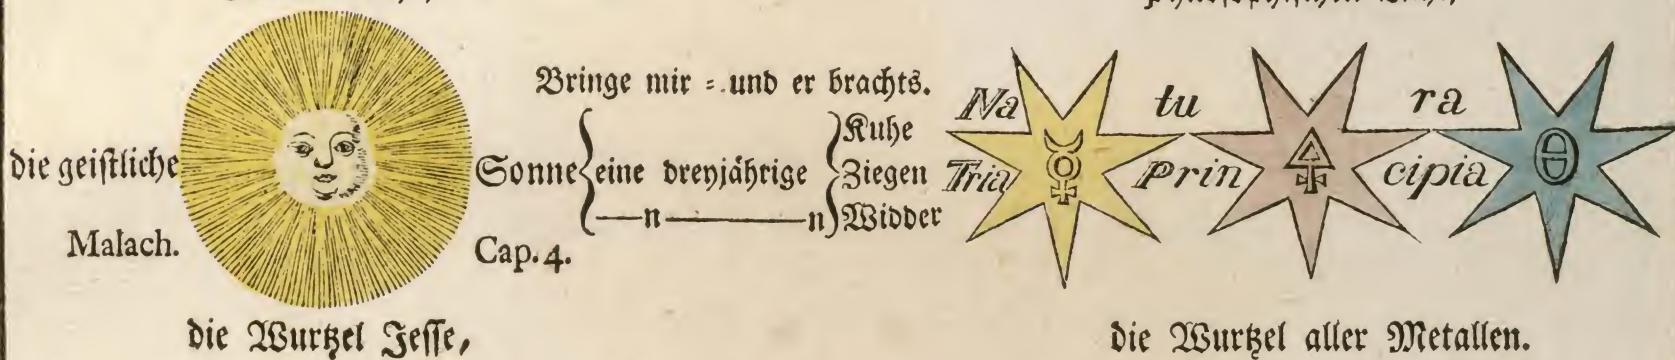 Bringe mir = und er brachts.
die geistliche Sonne eine dreyjährige Kuhe
Ziegen
—n———n Widder
Malach. Cap. 4.
Na tu ra
Tria Prin cipia
die Wurtzel Jesse,
die Wurtzel aller Metallen.